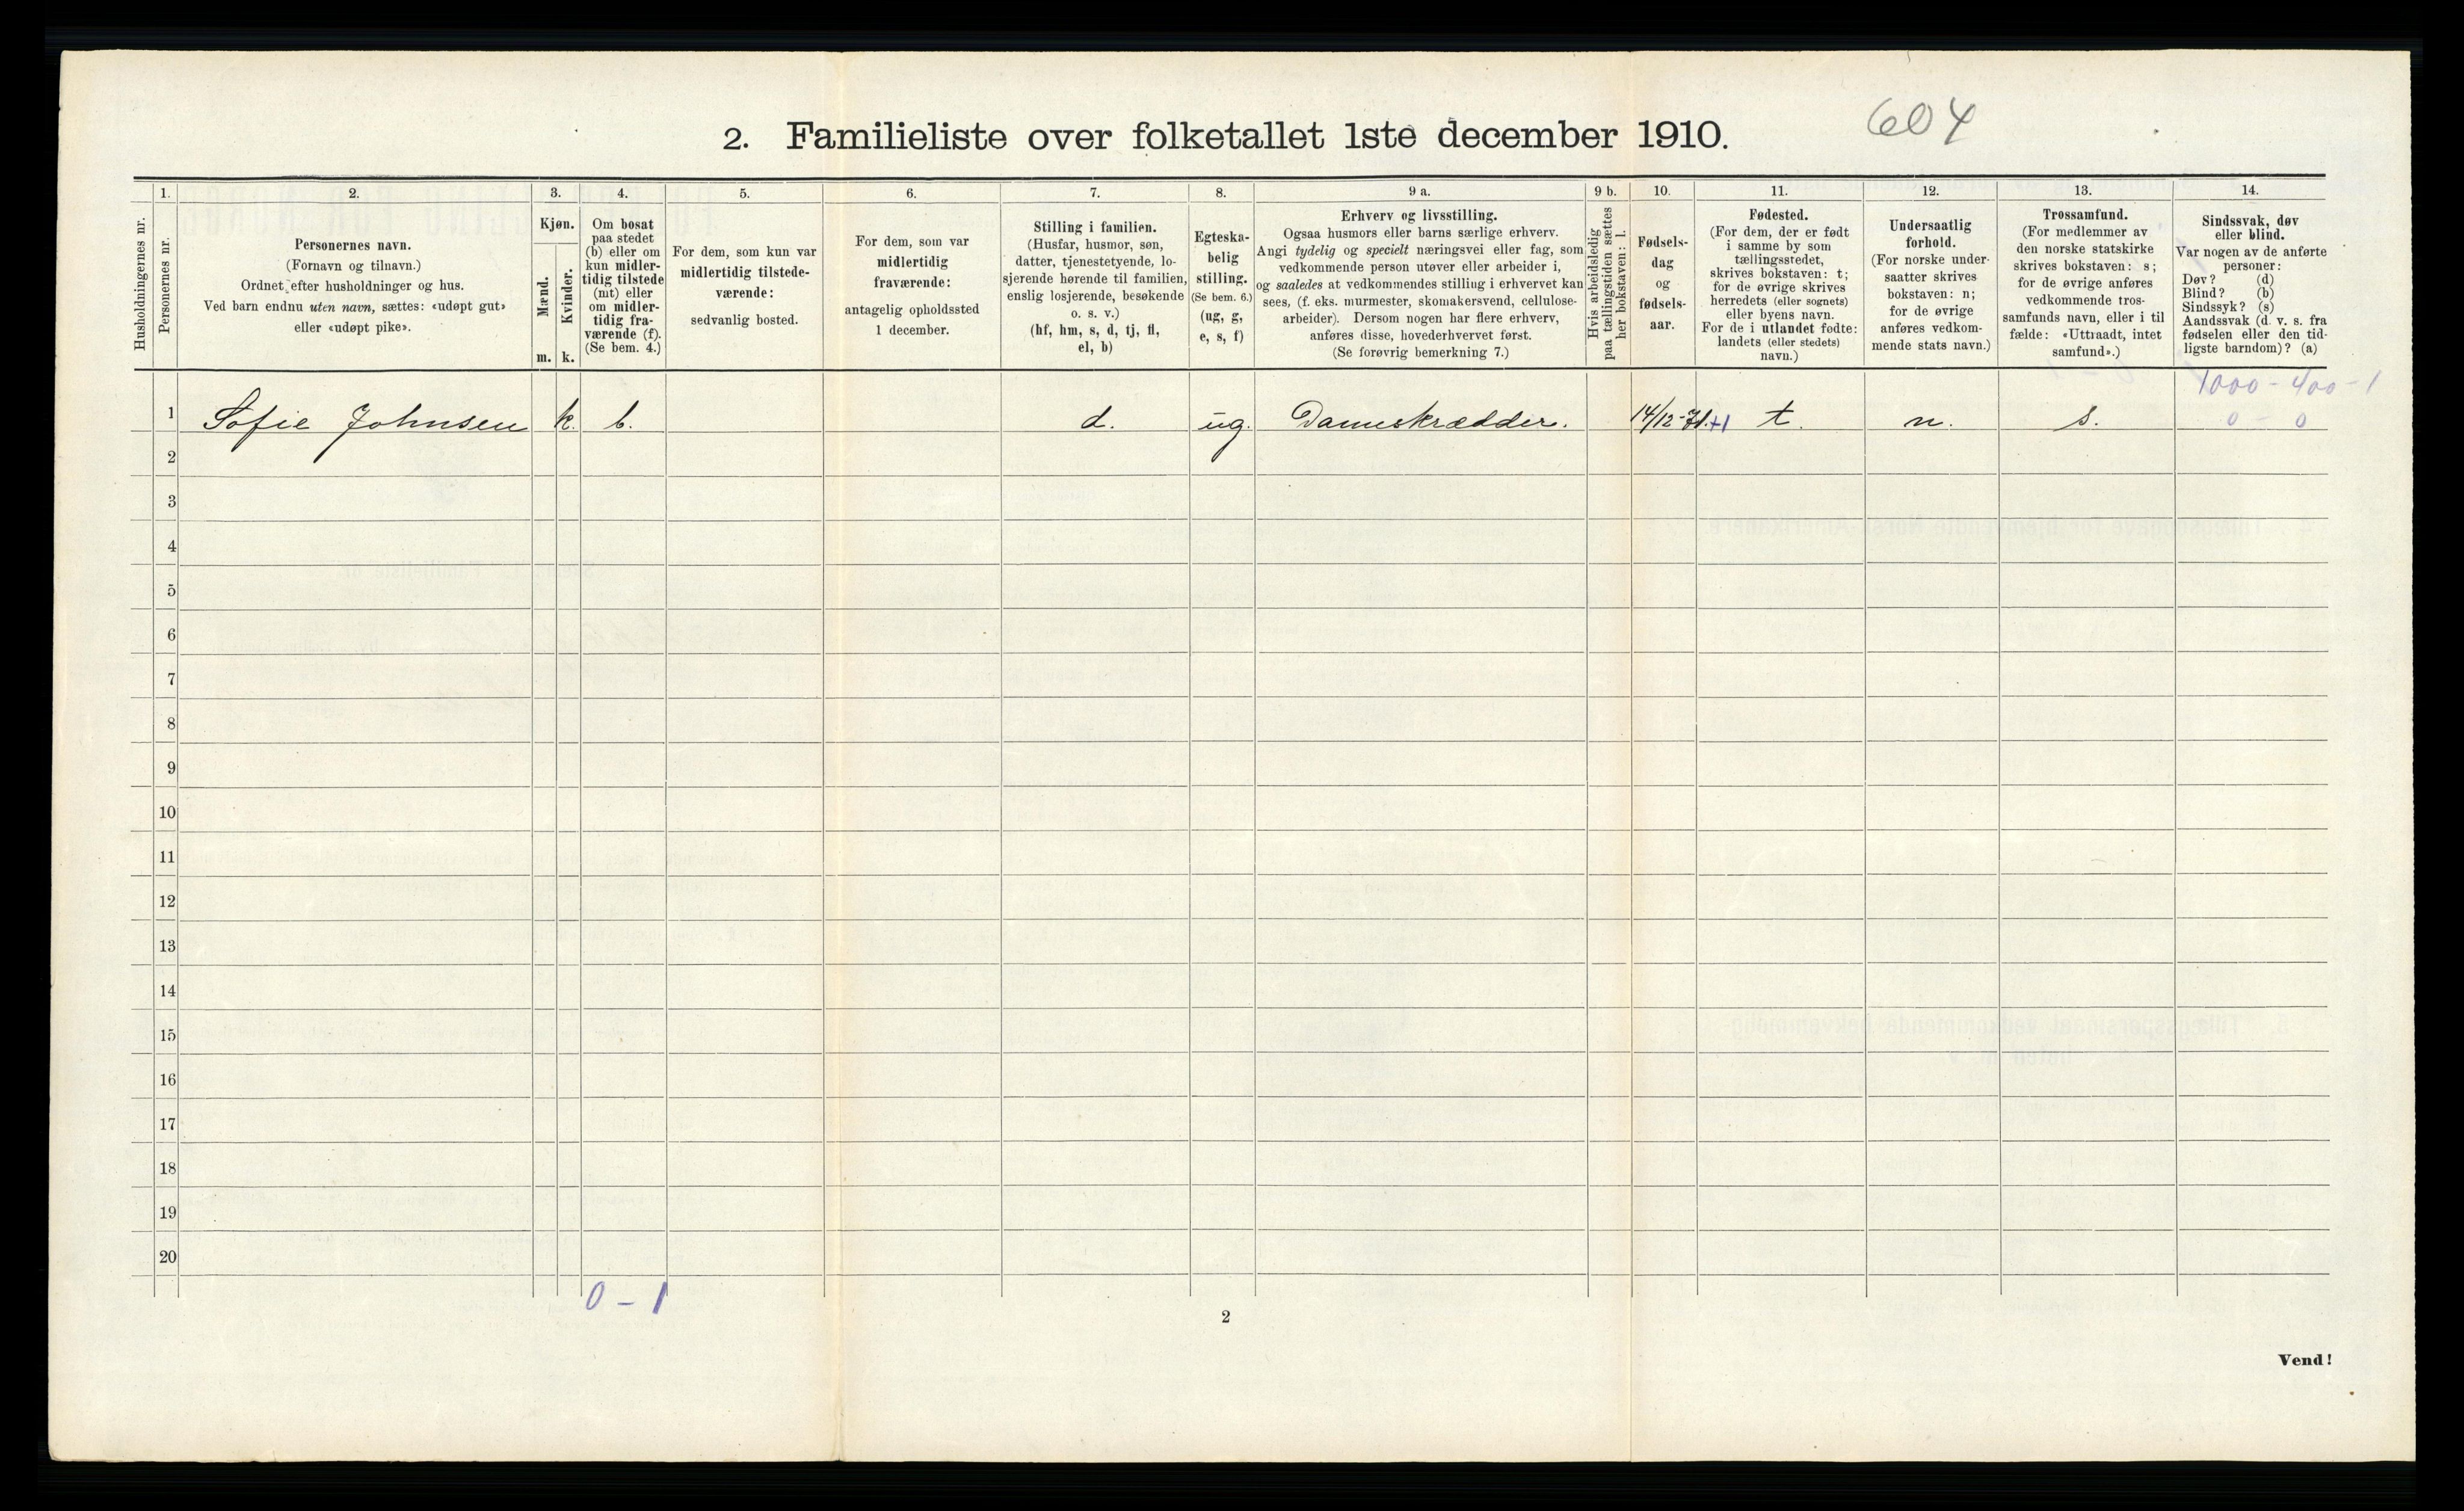 2. Familieliste over folketallet 1ste december 1910.
604
Husholdningernes nr.
1.
Personernes nr.
2.
Personernes navn.
(Fornavn og tilnavn.)
Ordnet efter husholdninger og hus.
Ved barn endnu uten navn, sættes: «udøpt gut»
eller «udøpt pike».
3.
Kjøn.
Mænd.
Kvinder.
m. k.
4.
Om bosat
paa stedet
(b) eller om
kun midler-
tidig tilstede
(mt) eller
om midler-
tidig fra-
værende (f).
(Se bem. 4.)
5.
For dem, som kun var
midlertidig tilstede-
værende:
sedvanlig bosted.
6.
For dem, som var
midlertidig
fraværende:
antagelig opholdssted
1 december.
7.
Stilling i familien.
(Husfar, husmor, søn,
datter, tjenestetyende, lo-
sjerende hørende til familien,
enslig losjerende, besøkende
o. s. v.)
(hf, hm, s, d, tj, fl,
el, b)
8.
Egteska-
belig
stilling.
(Se bem. 6.)
(ug, g,
e, s, f)
9 a.
Erhverv og livsstilling.
Ogsaa husmors eller barns særlige erhverv.
Angi tydelig og specielt næringsvei eller fag, som
vedkommende person utøver eller arbeider i,
og saaledes at vedkommendes stilling i erhvervet kan
sees, (f. eks. murmester, skomakersvend, cellulose-
arbeider). Dersom nogen har flere erhverv,
anføres disse, hovederhvervet først.
(Se forøvrig bemerkning 7.)
9 b.
Hvis arbeidsledig
paa tællingstiden sættes
her bokstaven: l.
10.
Fødsels-
dag
og
fødsels-
aar.
11.
Fødested.
(For dem, der er født
i samme by som
tællingsstedet,
skrives bokstaven: t;
for de øvrige skrives
herredets (eller sognets)
eller byens navn.
For de i utlandet fødte:
landets (eller stedets)
navn.)
12.
Undersaatlig
forhold.
(For norske under-
saatter skrives
bokstaven: n;
for de øvrige
anføres vedkom-
mende stats navn.)
13.
Trossamfund.
(For medlemmer av
den norske statskirke
skrives bokstaven: s;
for de øvrige anføres
vedkommende tros-
samfunds navn, eller i til
fælde: «Uttraadt, intet
samfund».)
14.
Sindssvak, døv
eller blind.
Var nogen av de anførte
personer:
Døv? (d)
Blind? (b)
Sindssyk? (s)
Aandssvak (d. v. s. fra
fødselen eller den tid-
ligste barndom)? (a)
1000-400-1
1 Sofie Johnsen k. b. d. ug. Dameskrædder. 14/12-71. +1 t. n. s. 0 - 0
2
3
4
5
6
7
8
9
10
11
12
13
14
15
16
17
18
19
20
0 - 1
2
Vend!